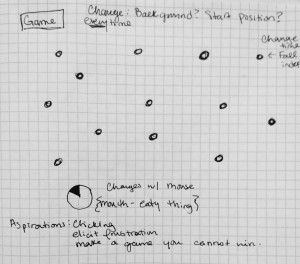 Game
Change: Background? Start position?
everytime
Change
time
← Fall
index
Changes w/ mouse
{mouth-eaty thing}
Aspirations: Clicking
elicit frustration
make a game you cannot win.